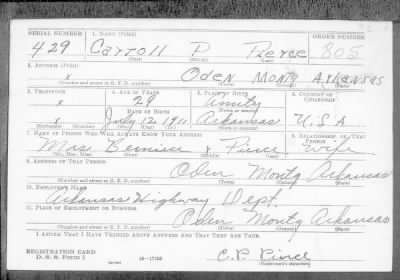 SERIAL NUMBER 1. NAME (Print) ORDER NUMBER
429 Carroll P Pierce 805
(First) (Middle) (Last)
2. ADDRESS (Print)
x Oden Montg Arkansas
(Number and street or R. F. D. number) (Town) (County) (State)
3. TELEPHONE 4. AGE IN YEARS 5. PLACE OF BIRTH 6. COUNTRY OF CITIZENSHIP
x 29 Amity
DATE OF BIRTH
x July 12, 1911 Arkansas U.S.A
(Exchange) (Number) (Mo.) (Day) (Yr.) (State or country)
7. NAME OF PERSON WHO WILL ALWAYS KNOW YOUR ADDRESS 8. RELATIONSHIP OF THAT PERSON
Mrs Bernice x Pierce Wife
(Mr., Mrs., Miss) (First) (Middle) (Last)
9. ADDRESS OF THAT PERSON
Oden Montg Arkansas
(Number and street or R. F. D. number) (Town) (County) (State)
10. EMPLOYER'S NAME
Arkansas Highway Dept.
11. PLACE OF EMPLOYMENT OR BUSINESS
Oden Montg Arkansas
(Number and street or R. F. D. number) (Town) (County) (State)
I AFFIRM THAT I HAVE VERIFIED ABOVE ANSWERS AND THAT THEY ARE TRUE.
REGISTRATION CARD
D. S. S. Form 1 C.P. Pierce
(Registrant's signature)